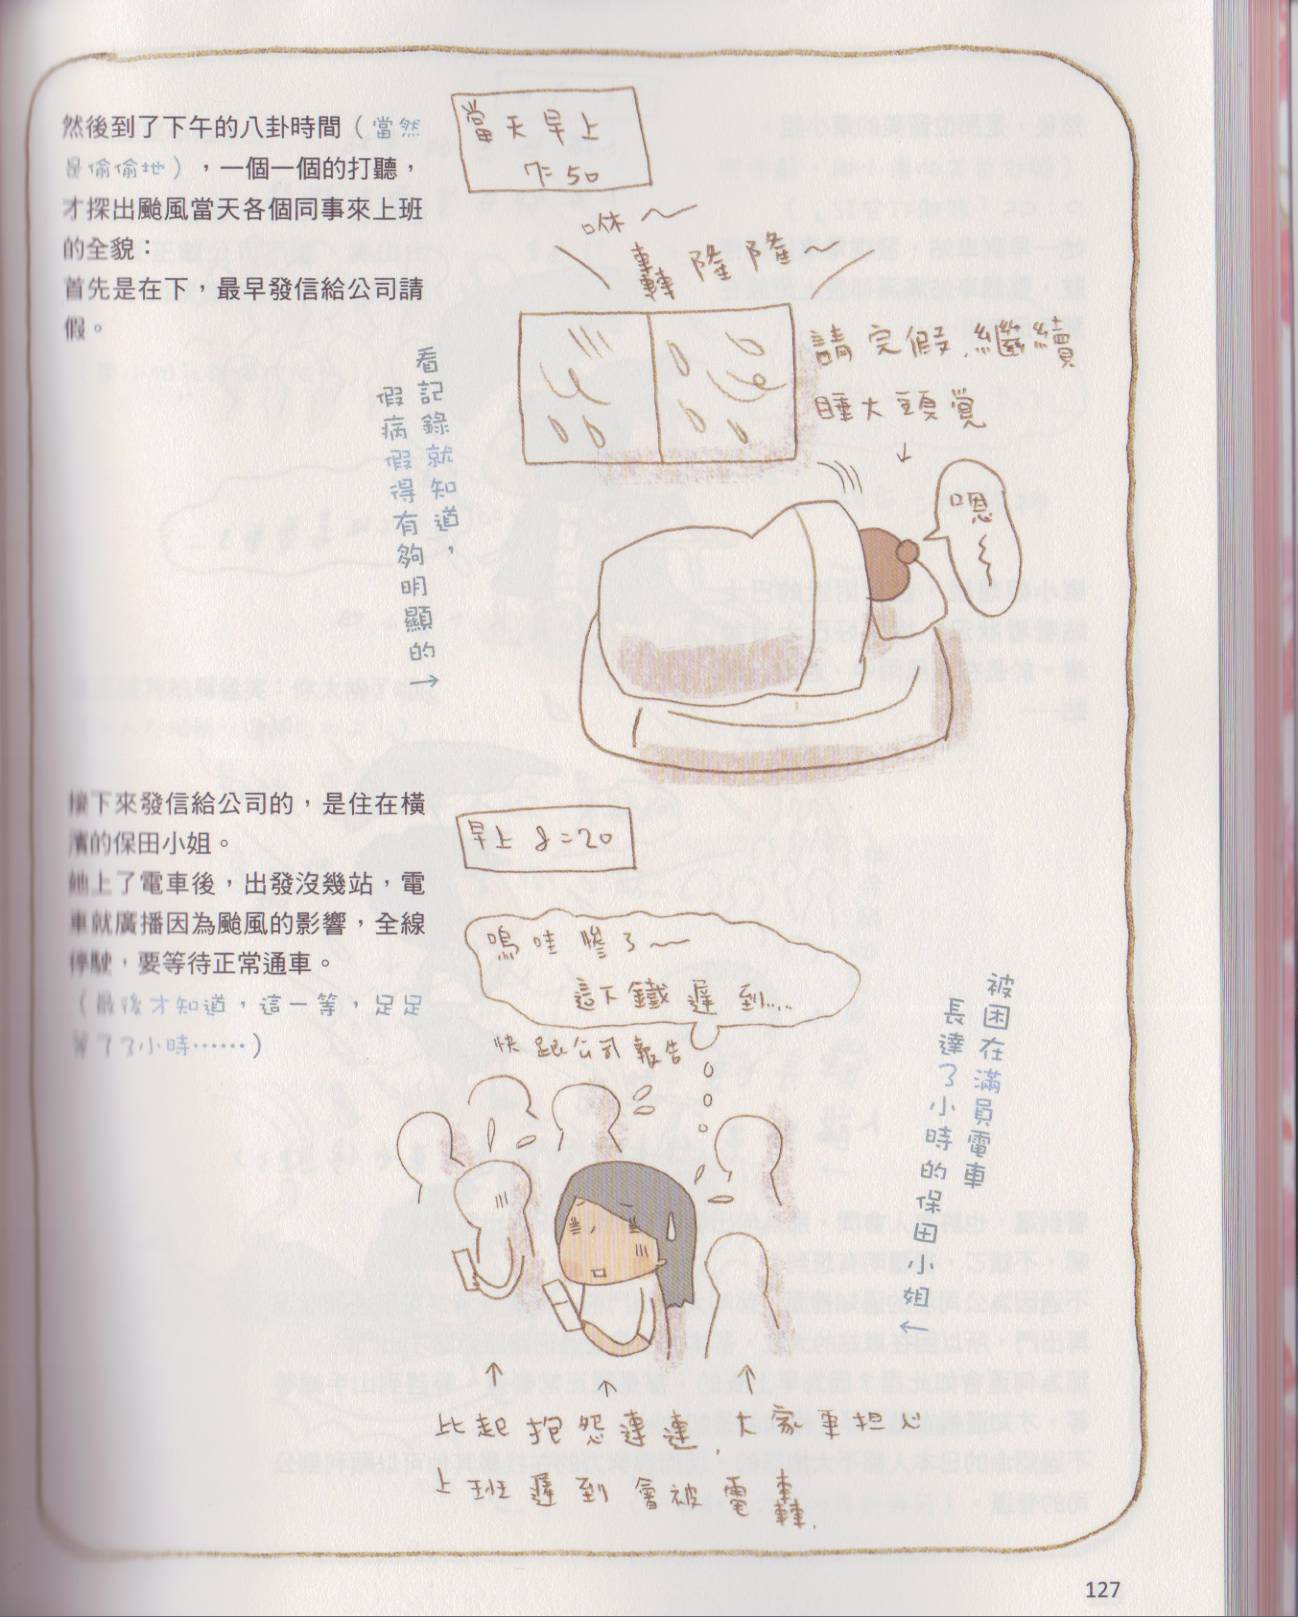 然後到了下午的八卦時間(當然
是偷偷地),一個一個的打聽,
才探出颱風當天各個同事來上班
的全貌:
首先是在下,最早發信給公司請
假。
當天早上
7:50
咻~
轟隆隆~
請完假,繼續
睡大頭覺
↓
嗯~
看記錄就知道,
假病假得有夠明顯的→
接下來發信給公司的,是住在橫
濱的保田小姐。
她上了電車後,出發沒幾站,電
車就廣播因為颱風的影響,全線
停駛,要等待正常通車。
(最後才知道,這一等,足足
等了3小時……)
早上 8:20
嗚哇慘了~
這下鐵遲到....
快跟公司報告
被困在滿員電車
長達3小時的保田小姐←
比起抱怨連連,大家更擔心
上班遲到會被電轟.
127